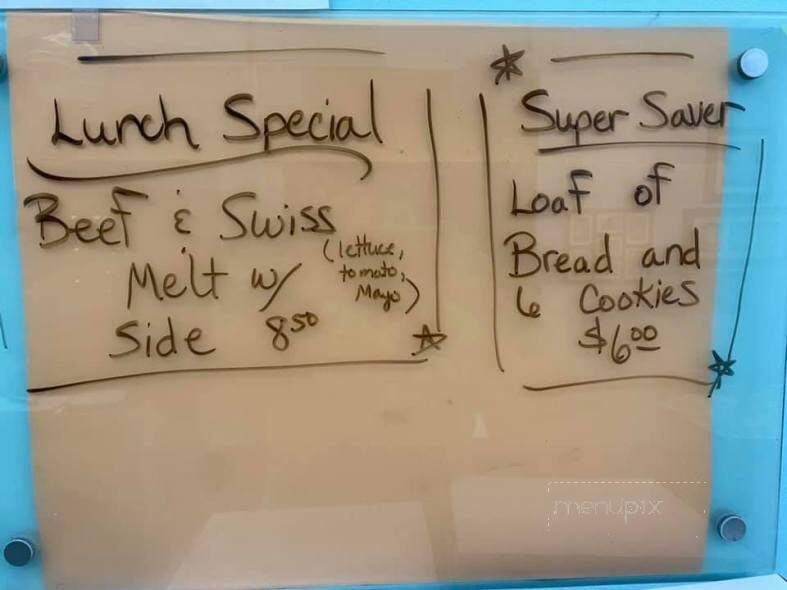 Lunch Special
Beef & Swiss
(lettuce,
tomato,
Mayo)
Melt w/
Side 8.50
Super Saver
Loaf of
Bread and
6 Cookies
$6.00
menupix